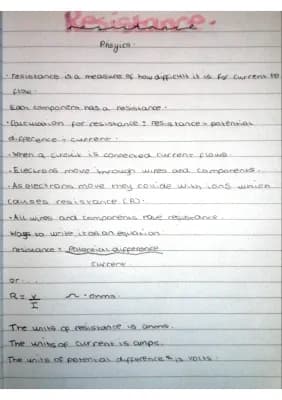 Resistance.
resistance
Phsyics.
· resistance is a measure of how difficult it is for current to
flow.
· Each component has a resistance.
· Calculation for resistance: resistance = potential
difference ÷ current.
· When a circuit is connected current flows.
· Electrons move through wires and components.
· As electrons move they collide with ions which
causes resistance (R).
· All wires and components have resistance.
Ways to write it as an equation
resistance = Potential difference
current
or...
R = V/I Ω = ohms.
The units of resistance is ohms.
The units of current is amps.
The units of potential difference is volts.